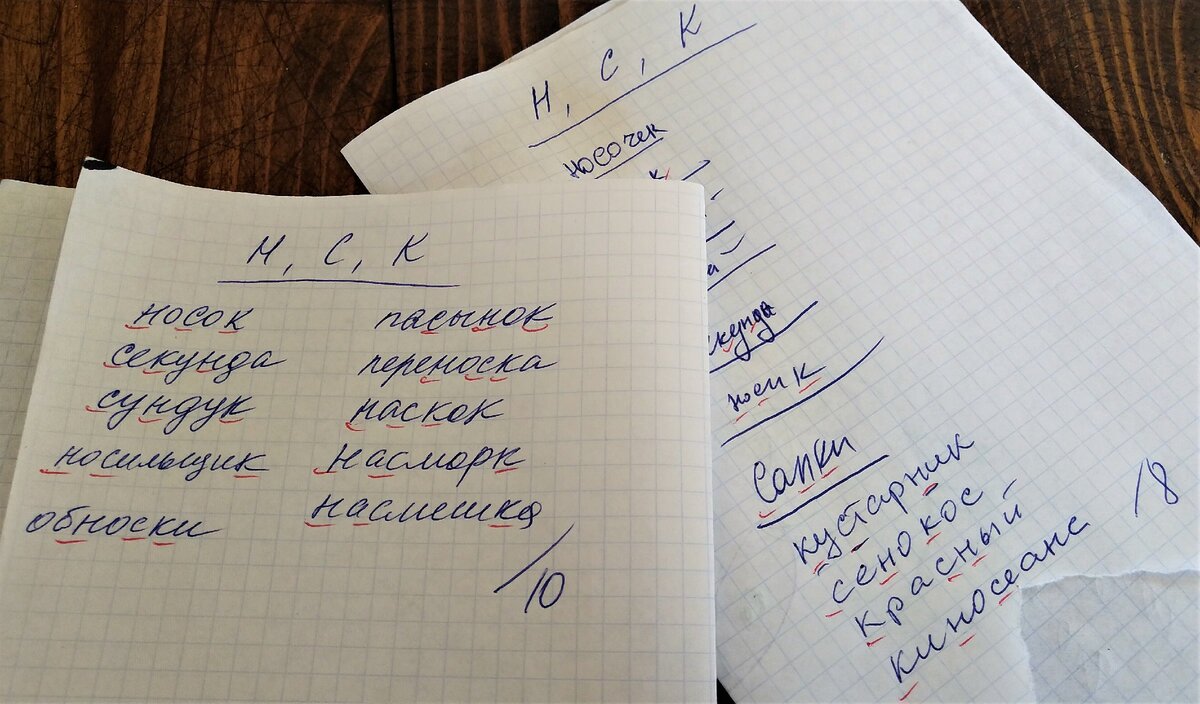 Н, С, К
носок пасынок
секунда переноска
сундук наскок
носильщик насморк
обноски насмешка
10
Н, С, К
носочек
носик
Санки
кустарник
сенокос
красный
киносеанс
18